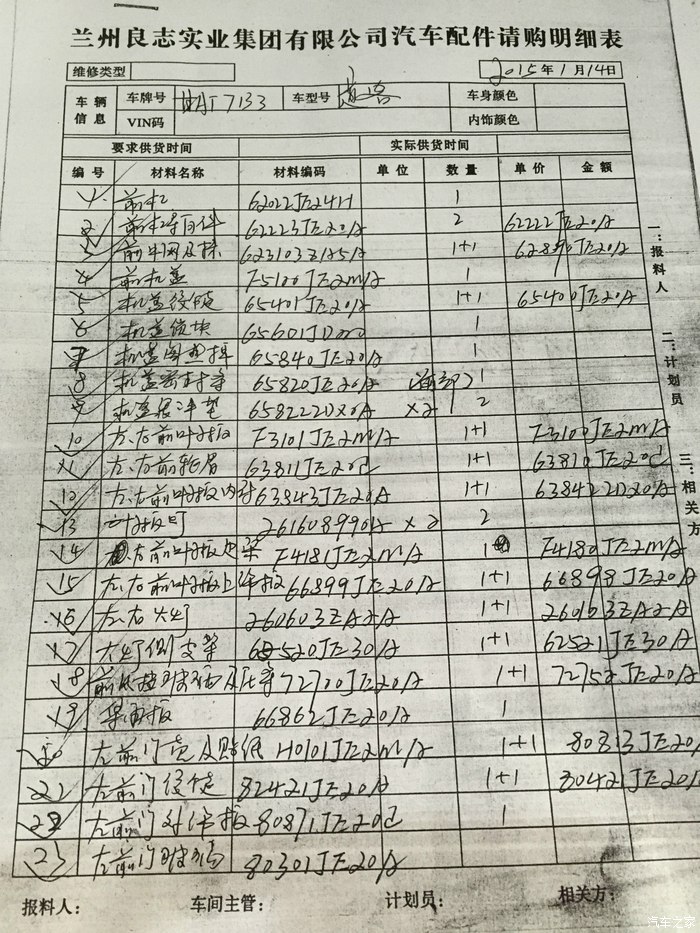 兰州良志实业集团有限公司汽车配件请购明细表
维修类型 2015年1月14日
车辆信息 车牌号 AT7133 车型号 车身颜色
VIN码 内饰颜色
要求供货时间 实际供货时间
编号 材料名称 材料编码 单位 数量 单价 金额
1 前杠 62022JE24H 1
2 前杠 62223JE20A 2 62222JE20A
3 前中网及标 623103ZA5A 1+1 62890JE20A
4 前机盖 F5100JE2MA 1
5 机盖铰链 65401JE20A 1+1 65400JE20A
6 机盖锁块 65601JD00 1
7 机盖 65840JE20A 1
8 机盖密封 65820JE20A 1
9 机盖缓冲垫 658222DX0A ×2 2
10 左.右前叶子板 F3101JE2MA 1+1 F3100JE2MA
11 左.右前轮眉 63811JE20C 1+1 63810JE20C
12 左.右前叶子板内衬 63843JE20A 1+1 638422DX0A
13 叶子板 261608990A ×2 2
14 右前叶子板 F4181JE2MA 1 F4180JE2MA
15 左.右前叶子板上 66899JE20A 1+1 66898JE20A
16 左.右大灯 260603ZA2A 1+1 260103ZA2A
17 大灯侧支架 62520JE30A 1+1 62521JE30A
18 前 玻璃及 72700JE20A 1+1 72752JE20A
19 板 66862JE20A 1
20 左前门壳及贴纸 H0101JE2MA 1+1 80313JE20
21 左前门铰链 82421JE20A 1+1 80421JE20A
22 左前门外 板 80871JE20C 1
23 左前门玻璃 80301JE20A
一:报料人
二:计划员
三:相关方
报料人: 车间主管: 计划员: 相关方:
汽车之家